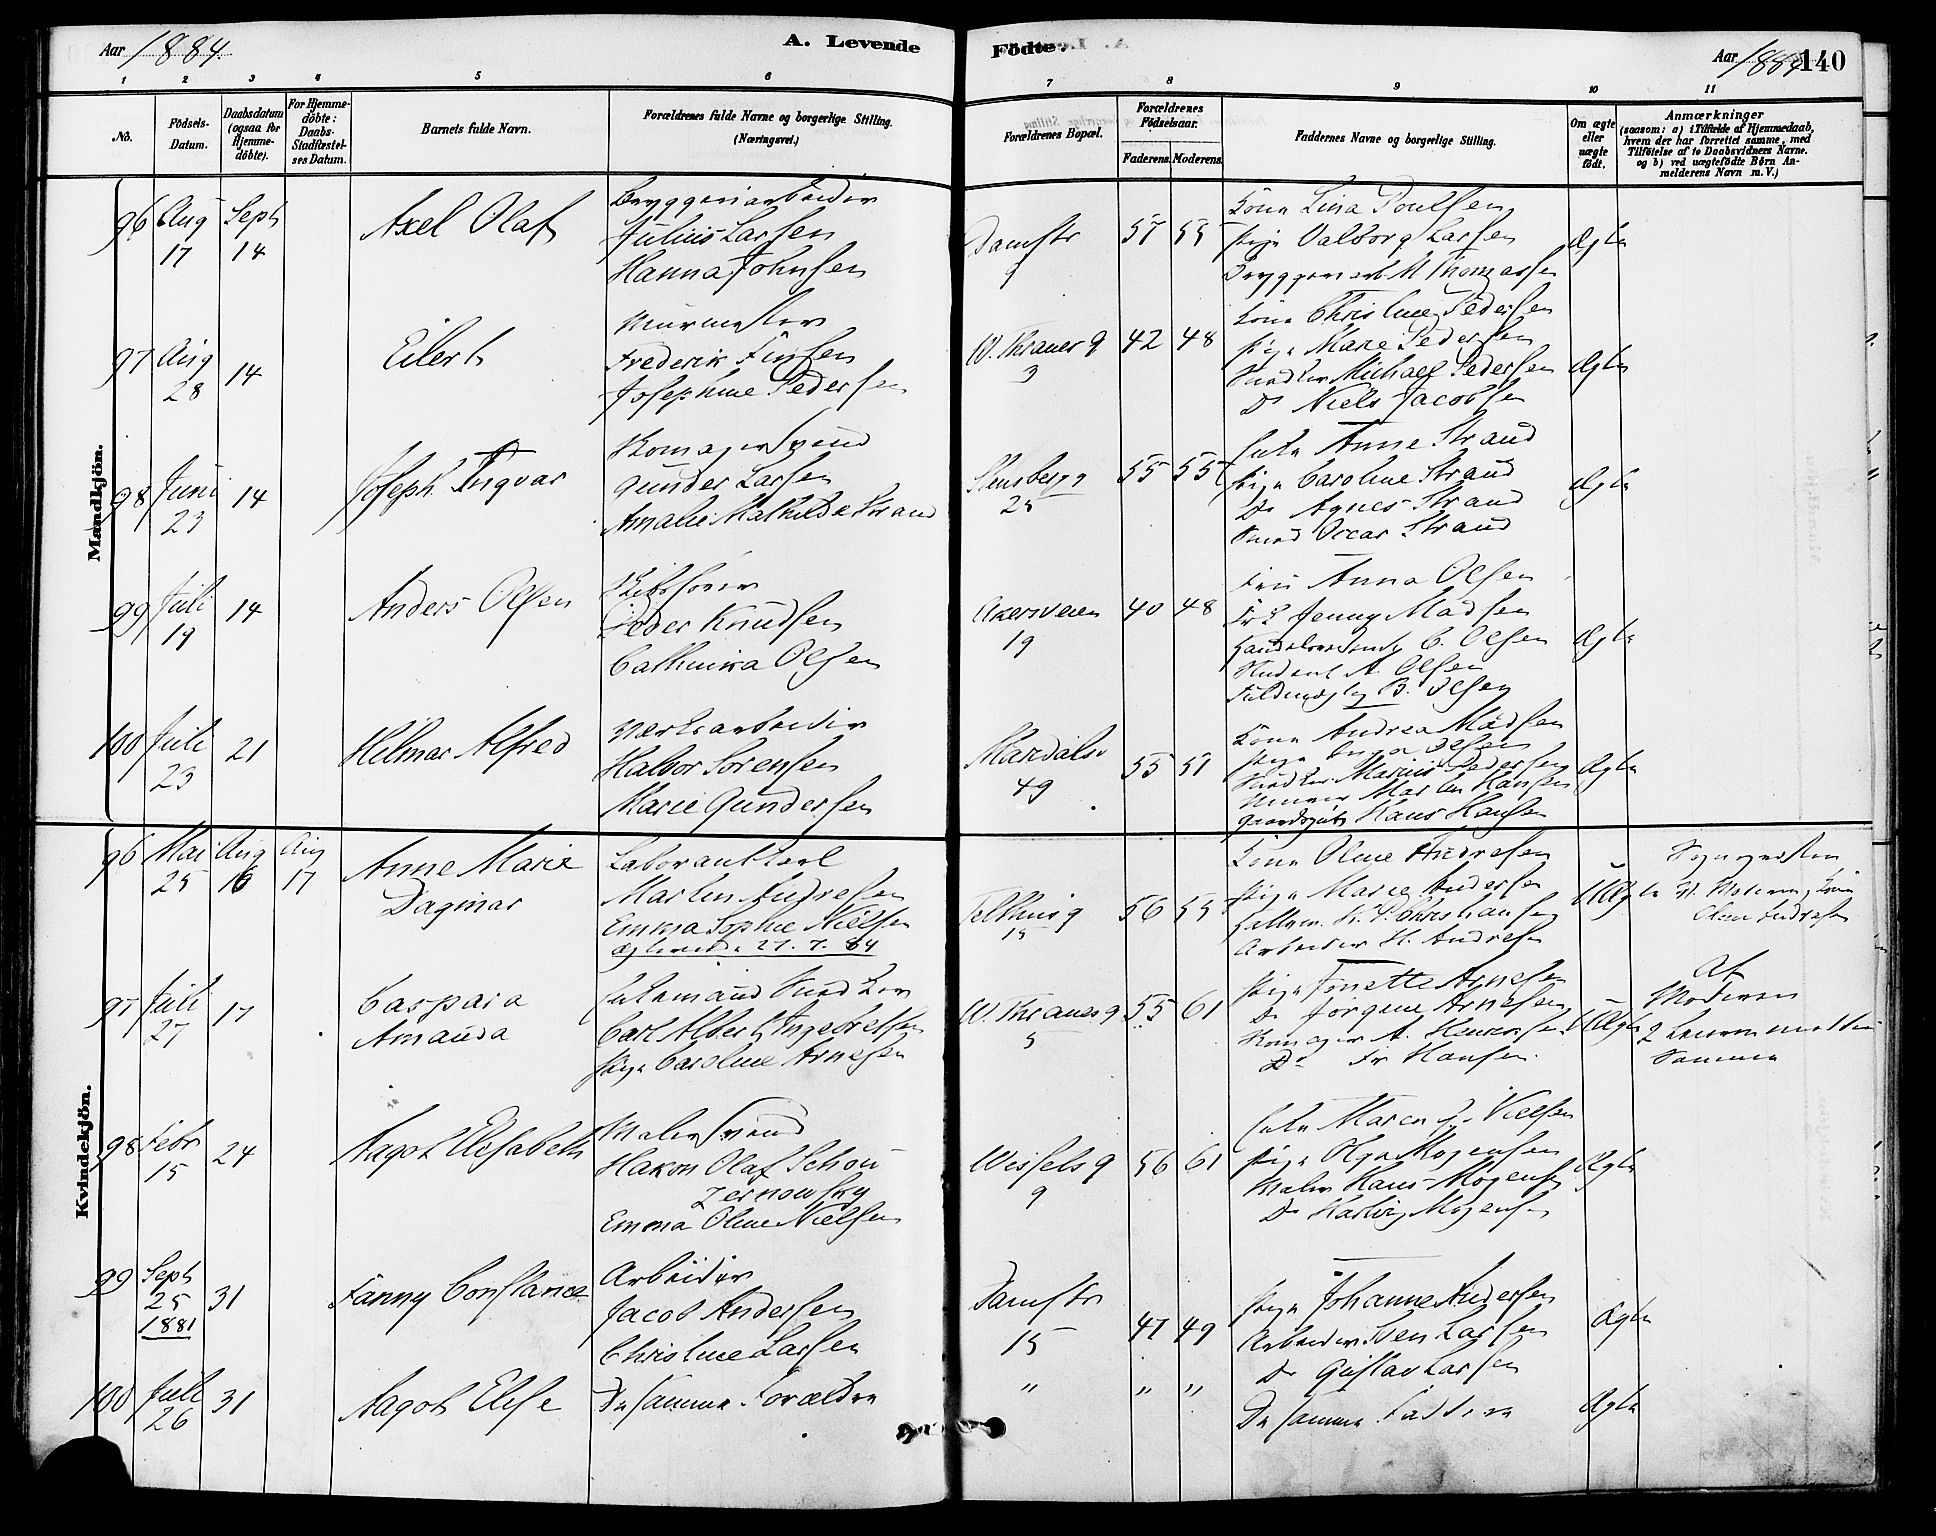 Aar 1884.
A. Levende
Födte.
Aar 1884
140
1 2 3 4 5 6 7 8 9 10 11
No.
Födsels-Datum.
Daabsdatum (ogsaa for Hjemme-döbte).
For Hjemme-döbte: Daabs-Stadfæstel-ses Datum.
Barnets fulde Navn.
Forældrenes fulde Navne og borgerlige Stilling. (Næringsvei.)
Forældrenes Bopæl.
Forældrenes Födselsaar.
Faderens. Moderens.
Faddernes Navne og borgerlige Stilling.
Om ægte eller uægte födt.
Anmærkninger
(saasom: a) i Tilfælde af Hjemmedaab,
hvem der har forrettet samme, med
Tilföielse af to Daabsvidners Navne.
og b) ved uægtefödte Börn An-
melderens Navn m. V.)
Mandkjön.
96 Aug 17 Sept 14 Axel Olaf
Bryggeriarbeider
Julius Larsen
Hanna Johnsen
Damstr 9 57 55
Kone Lina Poulsen
Pige Valborg Larsen
Bryggeriarb M Thomassen
Ægte
97 Aug 28 14 Eilert
Murmester
Frederik Finsen
Josephine Pedersen
W. Thranes g 3 42 48
Kone Christine Pedersen
Pige Marie Pedersen
Snedker Michael Pedersen
Do Niels Jacobsen
Ægte
98 Juni 23 14 Joseph Ingvar
Skomagersvend
Gunder Larsen
Amalie Mathilde Strand
Stensbergg 25 55 55
Enke Anne Strand
Pige Caroline Strand
Do Agnes Strand
Smed Oscar Strand
Ægte
99 Juli 19 14 Anders Olsen
Skibsförer
Peder Knudsen
Cathinka Olsen
Akersveien 19 40 48
Fru Anna Olsen
Frk Jenny Madsen
C. Olsen
Student A. Olsen
Fuldmægtig B. Olsen
Ægte
100 Juli 23 21 Hilmar Alfred
Værksarbeider
Halvor Sörensen
Marie Gundersen
Maridalsv 49 55 51
Kone Andrea Madsen
Pige Olsen
Snedker Marius Pedersen
Martin Hansen
Gaardsgut Hans Hansen
Ægte
Kvindekjön.
96 Mai 25 Aug 16 Aug 17 Anne Marie Dagmar
Laborantkarl
Martin Andresen
Emma Sophie Nielsen
27. 7. 84
Telthusg 15 56 55
Kone Oline Andresen
Pige Marie Andersen
Christiansen
Arbeider H. Andresen
Uægte
Oline Andresen
97 Juli 27 17 Caspara Amanda
Snedker
Carl Albert Ingebretsen
Pige Caroline Arnesen
W. Thranesg 5 55 61
Pige Tonette Arnesen
Do Jörgine Arnesen
Skomager A. Henriksen
Do Fr Hansen.
Uægte
Af Moderen
Samme
98 Febr 15 24 Aagot Elisabeth
Malersvend
Hakon Olaf Schou
Zernowsky
Emma Oline Nielsen
Wesselsg 9 56 61
Enke Maren Nielsen
Pige Olga Mogensen
Maler Hans Mogensen
Do Hartvig Mogensen
Ægte
99 Sept 25 1881 31 Fanny Constance
Arbeider
Jacob Andersen
Christine Larsen
Damstr 15 47 49
Pige Johanne Andersen
Arbeider Sven Larsen
Do Gustav Larsen
Ægte
100 Juli 26 31 Aagot Elise
De samme Forældre
" " "
De samme Faddere
Ægte